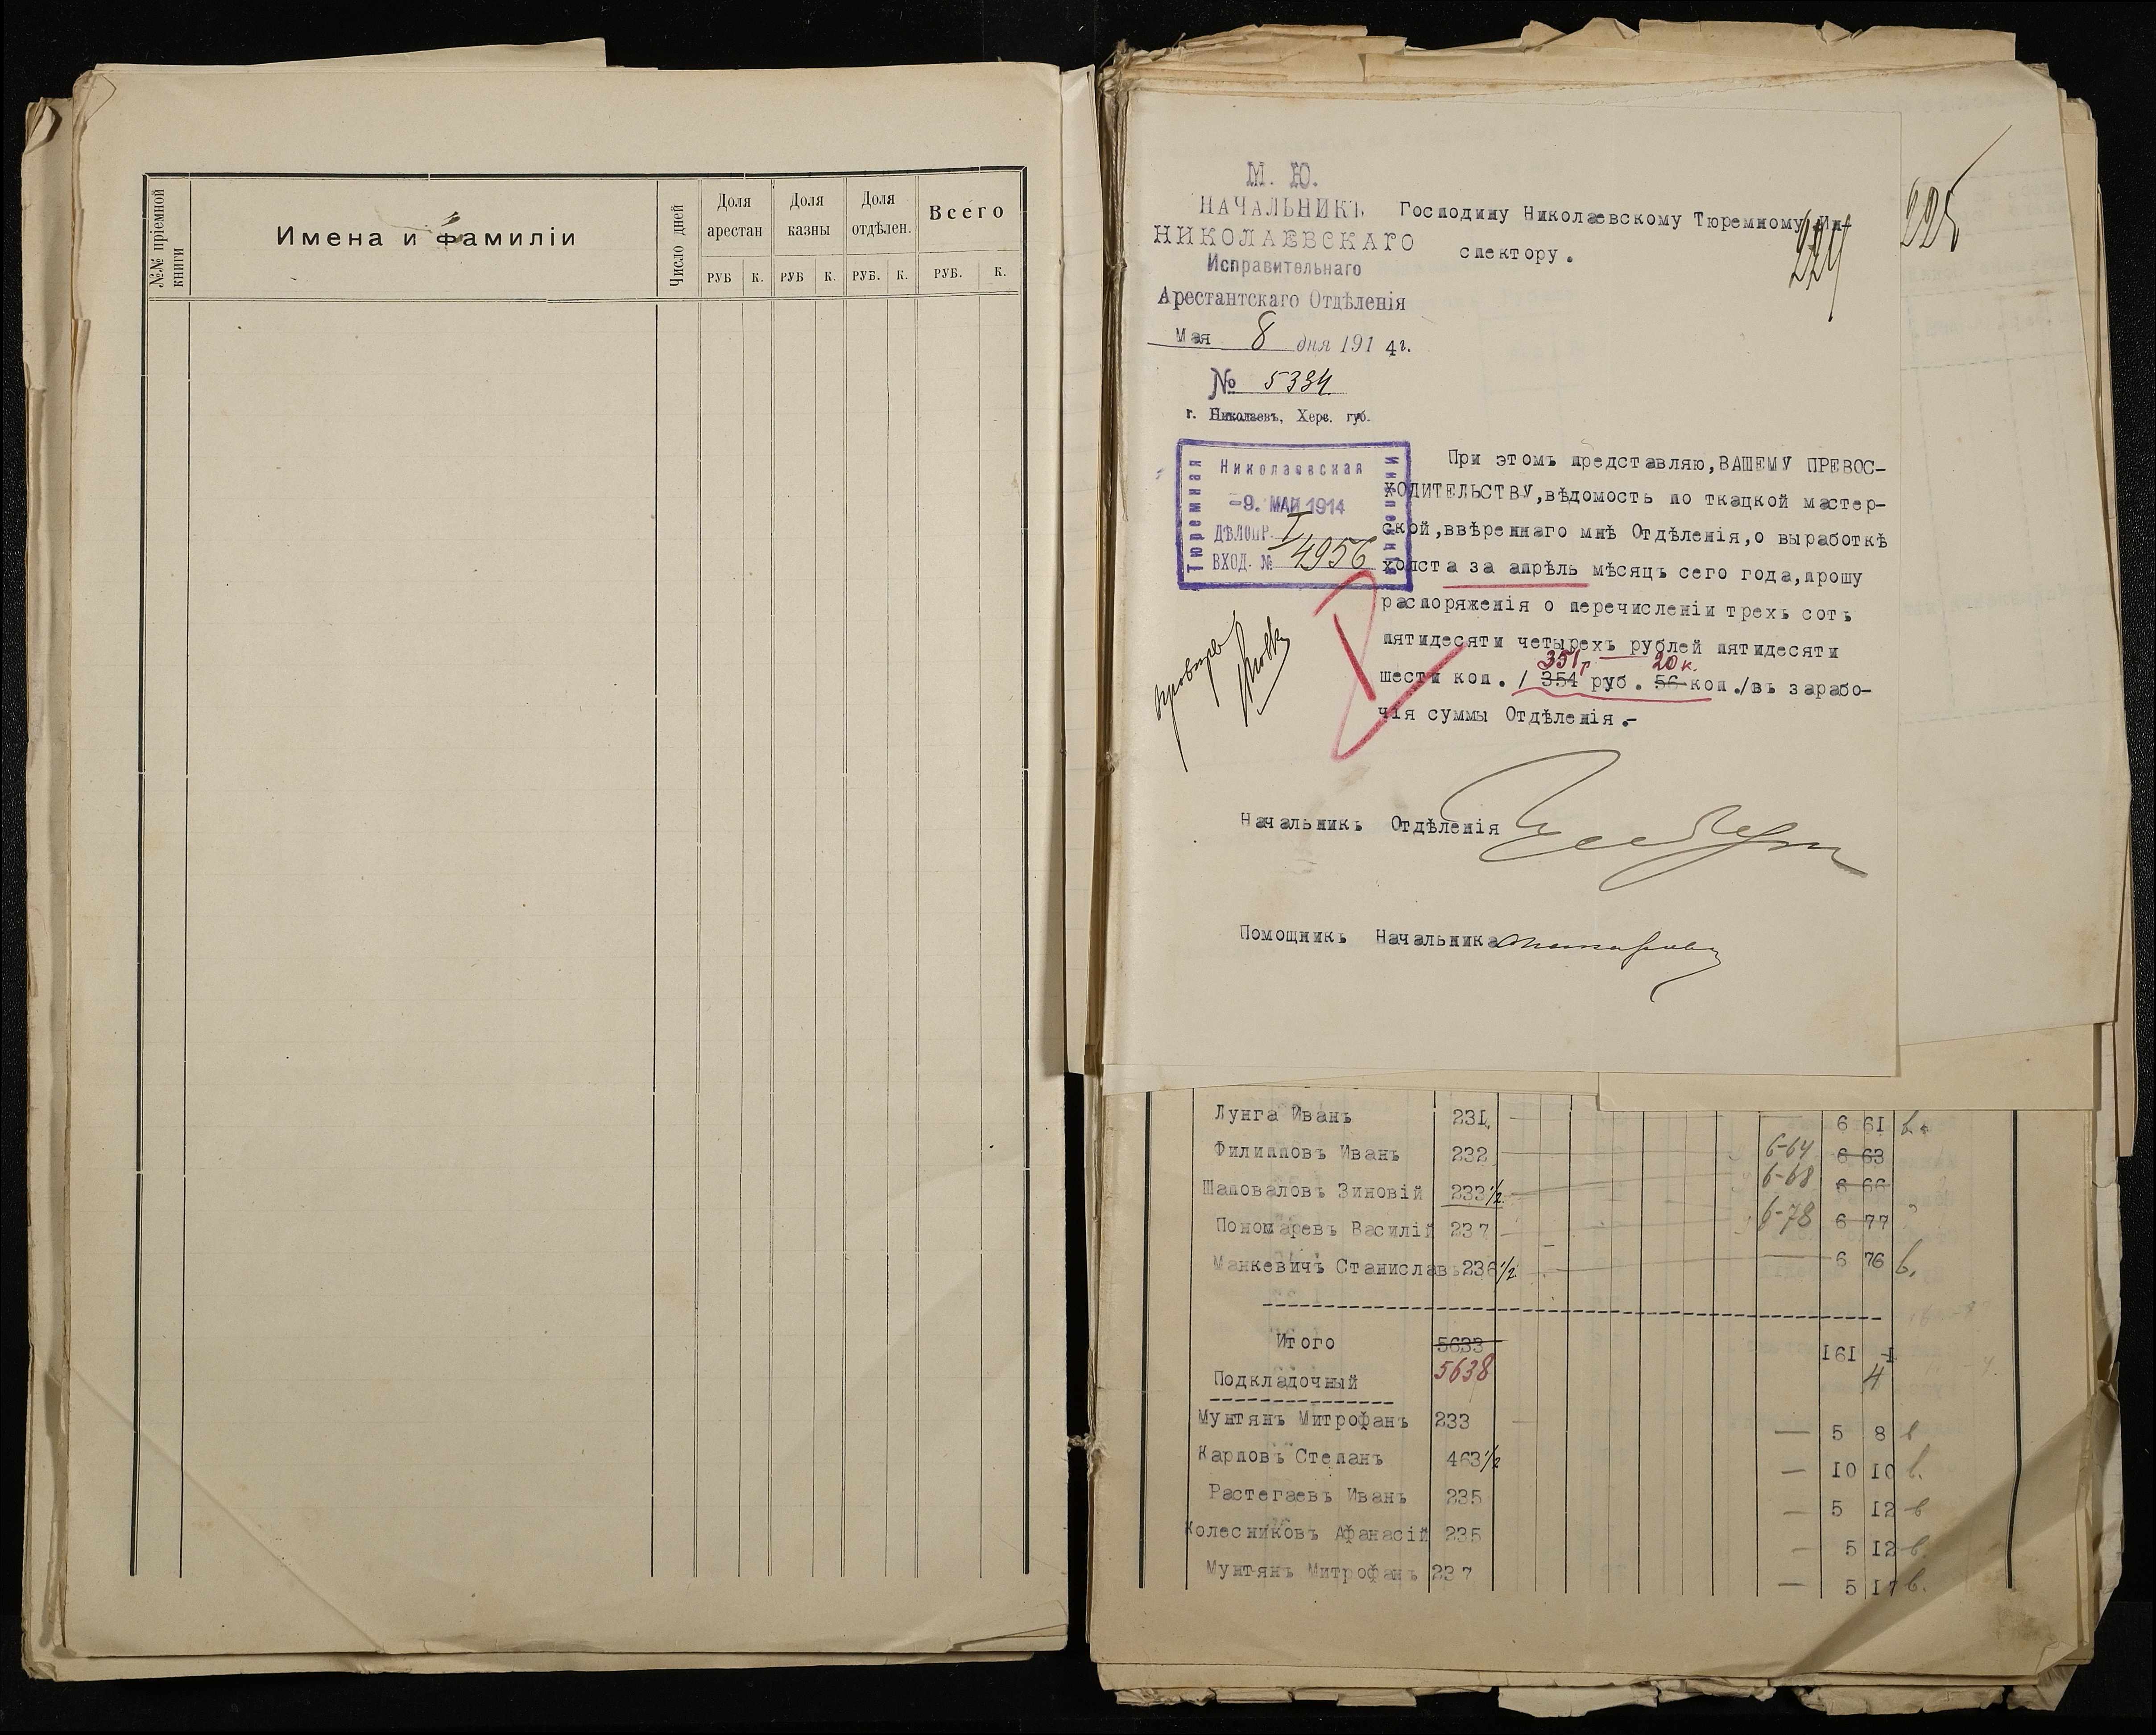 №№ пріемной книги
Имена и фамиліи
Число дней
Доля арестан
Доля казны
Доля отдѣлен.
Всего
РУБ К. РУБ К. РУБ. К. РУБ. К.
М. Ю.
НАЧАЛЬНИКЪ
НИКОЛАЕВСКАГО
Исправительнаго
Арестантскаго Отдѣленія
Мая 8 дня 1914г.
№ 5334.
г. Николаевъ, Херс. губ.
Господину Николаевскому Тюремному Ин-
спектору.
224
225
Тюремная
Николаевская
Инспекція
-9. МАЙ 1914
ДѢЛОПР. I
ВХОД. № 4956
При этомъ представляю,ВАШЕМУ ПРЕВОС-
ХОДИТЕЛЬСТВУ,вѣдомость по ткацкой мастер-
ской,ввѣреннаго мнѣ Отдѣленія,о выработкѣ
холста за апрѣль мѣсяцъ сего года,прошу
распоряженія о перечисленіи трехъ сотъ
пятидесяти четырехъ рублей пятидесяти
351р 20к.
шести коп. / 354 руб. 56 коп./въ зарабо-
чія суммы Отдѣленія.-
Начальникъ Отдѣленія
Помощникъ Начальника
Лунга Иванъ 231 6 61 в.
Филипповъ Иванъ 232 6-64 6 63
Шаповаловъ Зиновій 233 1/2 6-68 6 66
Пономаревъ Василій 237 6-78 6 77
Манкевичъ Станислав 236 1/2 6 76 в.
Итого 5633 161 1
5638 4
Подкладочный
Мунтянъ Митрофанъ 233 5 8 в
Карповъ Степанъ 463 1/2 10 10 в.
Растегаевъ Иванъ 235 5 12 в
Колесниковъ Афанасій 235 5 12 в.
Мунтянъ Митрофанъ 237 5 17 в.